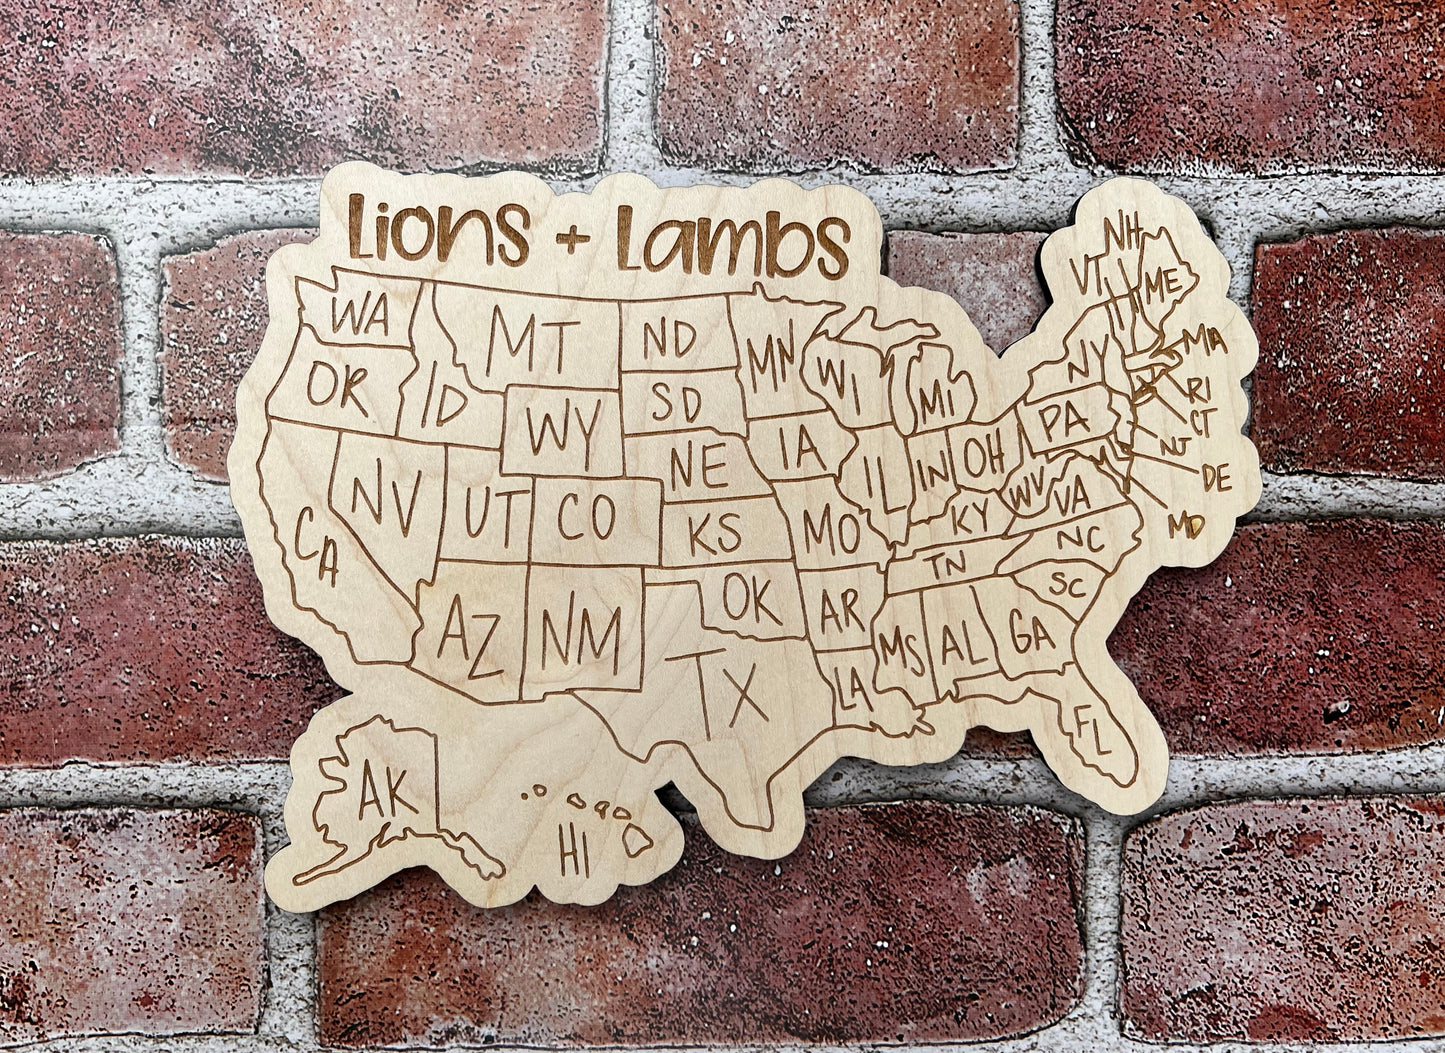 Lions + Lambs
NH
VT
ME
WA
MT
ND
MN
WI
MI
NY
MA
OR
ID
SD
RI
WY
IA
PA
CT
NE
IL
IN
OH
NJ
NV
UT
CO
KS
MO
WV
VA
DE
CA
KY
NC
MD
TN
SC
AZ
NM
OK
AR
MS
AL
GA
TX
LA
FL
AK
HI